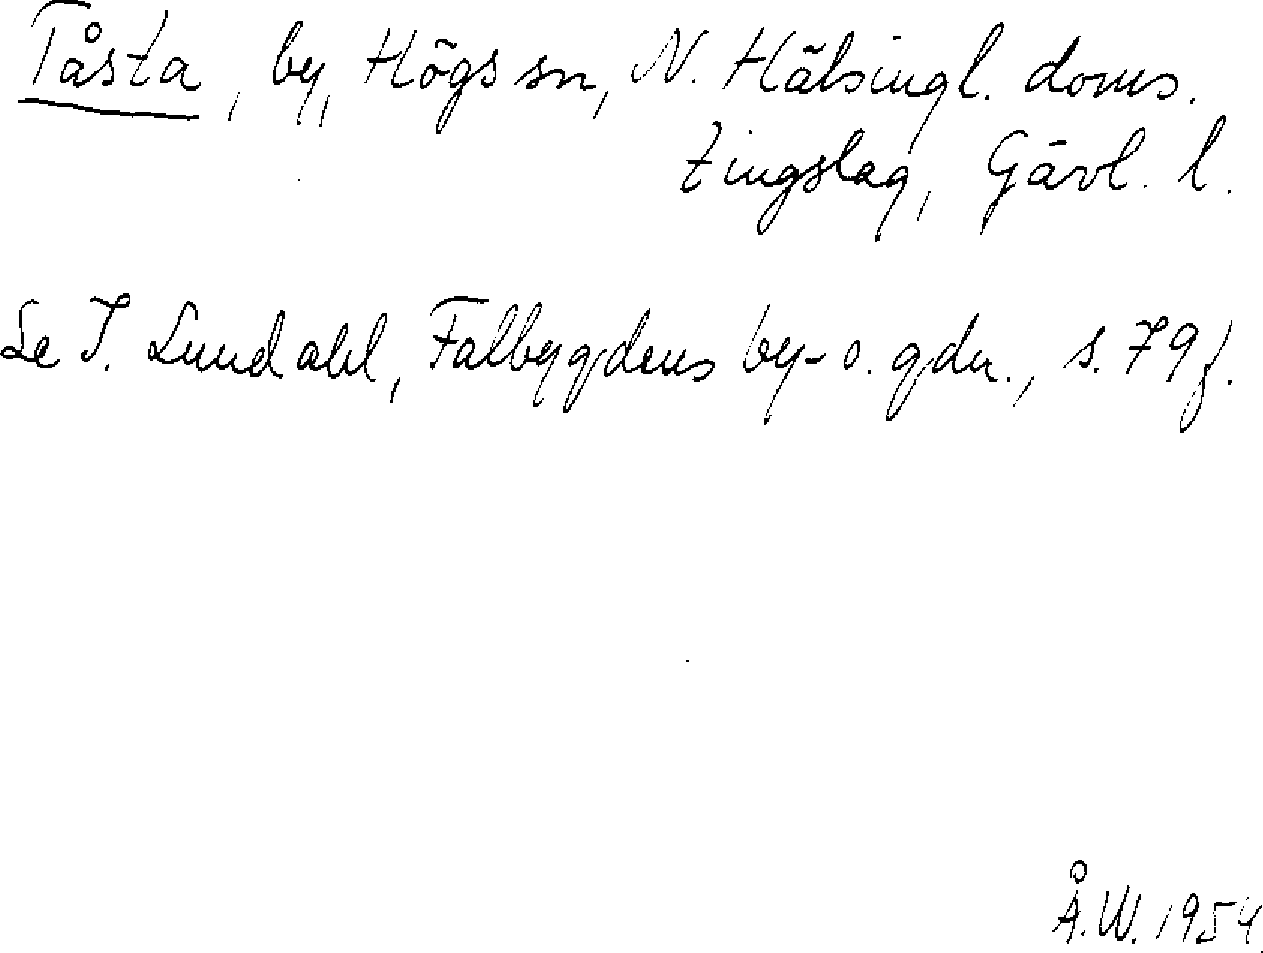 Tåsta, by, Högs sn, N. Hälsingl. doms.
tingslag, Gävl. l.
Se I. Lundahl, Falbygdens by- o. gdn., s. 79 f.
Å.W. 1954.